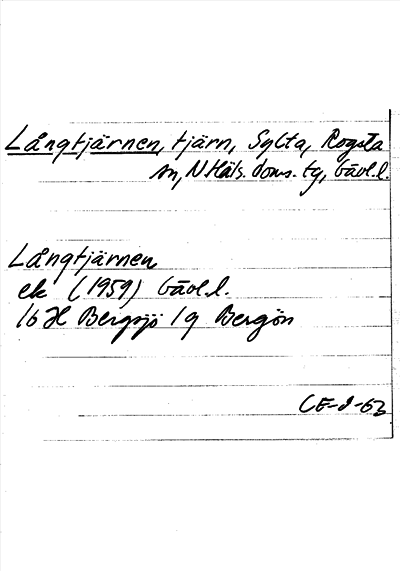 Långtjärnen, tjärn, Sylta, Rogsta
sn, N Häls. doms. tg, Gävl.l.
Långtjärnen
ek (1959) Gävl.l.
16 H Bergsjö 1g Bergön
CE-J-63